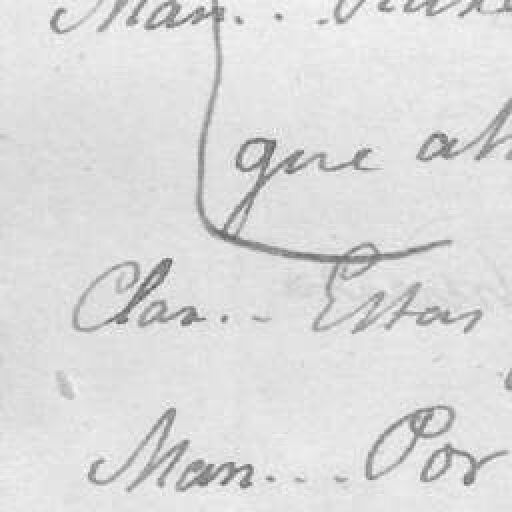 Man...
que
Clar.. Estas
Man.... Por